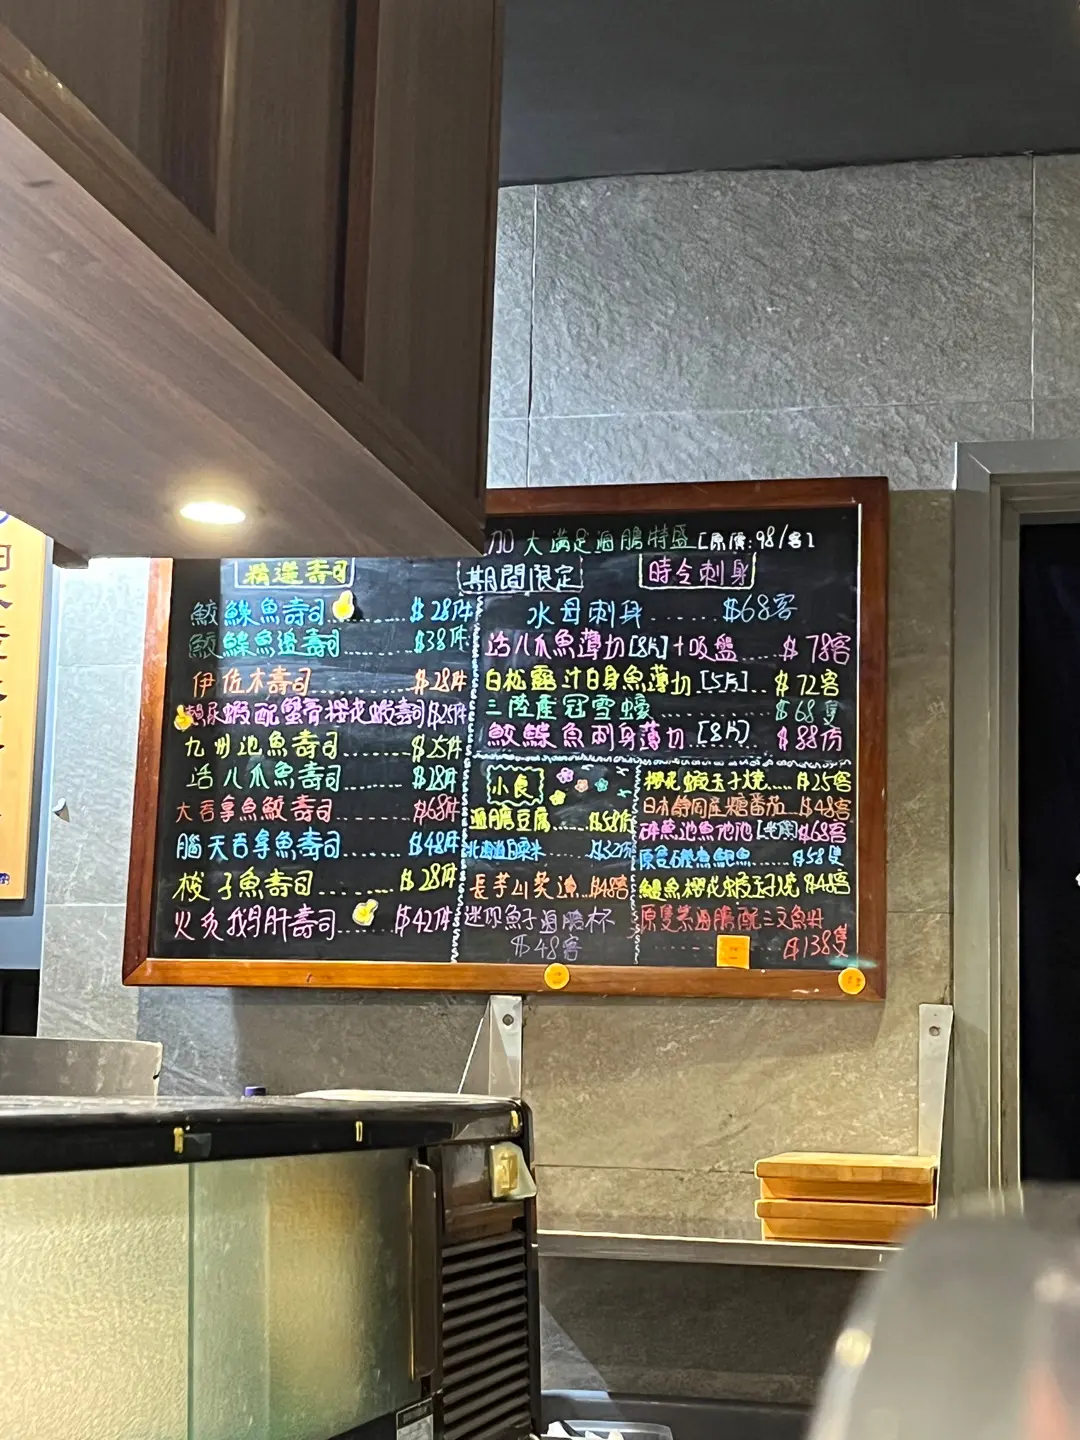 加大滿足海膽特盛[原價:98/客]
精選壽司
期間限定
時令刺身
鮫鰈魚壽司 $28件
鮫鰈魚邊壽司 $38件
伊佐木壽司 $28件
蝦配蟹膏櫻花蝦壽司 $25件
九州池魚壽司 $25件
活八爪魚壽司 $28件
大吞拿魚鮫壽司 $68件
腦天吞拿魚壽司 $48件
梭子魚壽司 $28件
火炙鵝肝壽司 $42件
水母刺身 $68客
活八爪魚薄切[8片]+吸盤 $78客
白松露汁白身魚薄切[5片] $72客
三陸產冠雪蠔 $68隻
鮫鰈魚刺身薄切[8片] $88份
小食
海膽豆腐 $58份
北海道粟米 $32份
長芋 $48客
迷你魚子海膽杯
$48客
櫻花蝦玉子燒 $25客
日本靜岡產糖番茄 $48客
池魚 $68客
原隻磯煮鮑魚 $58隻
鰻魚櫻花蝦玉子燒 $48客
原隻紫海膽配三文魚籽
$138隻